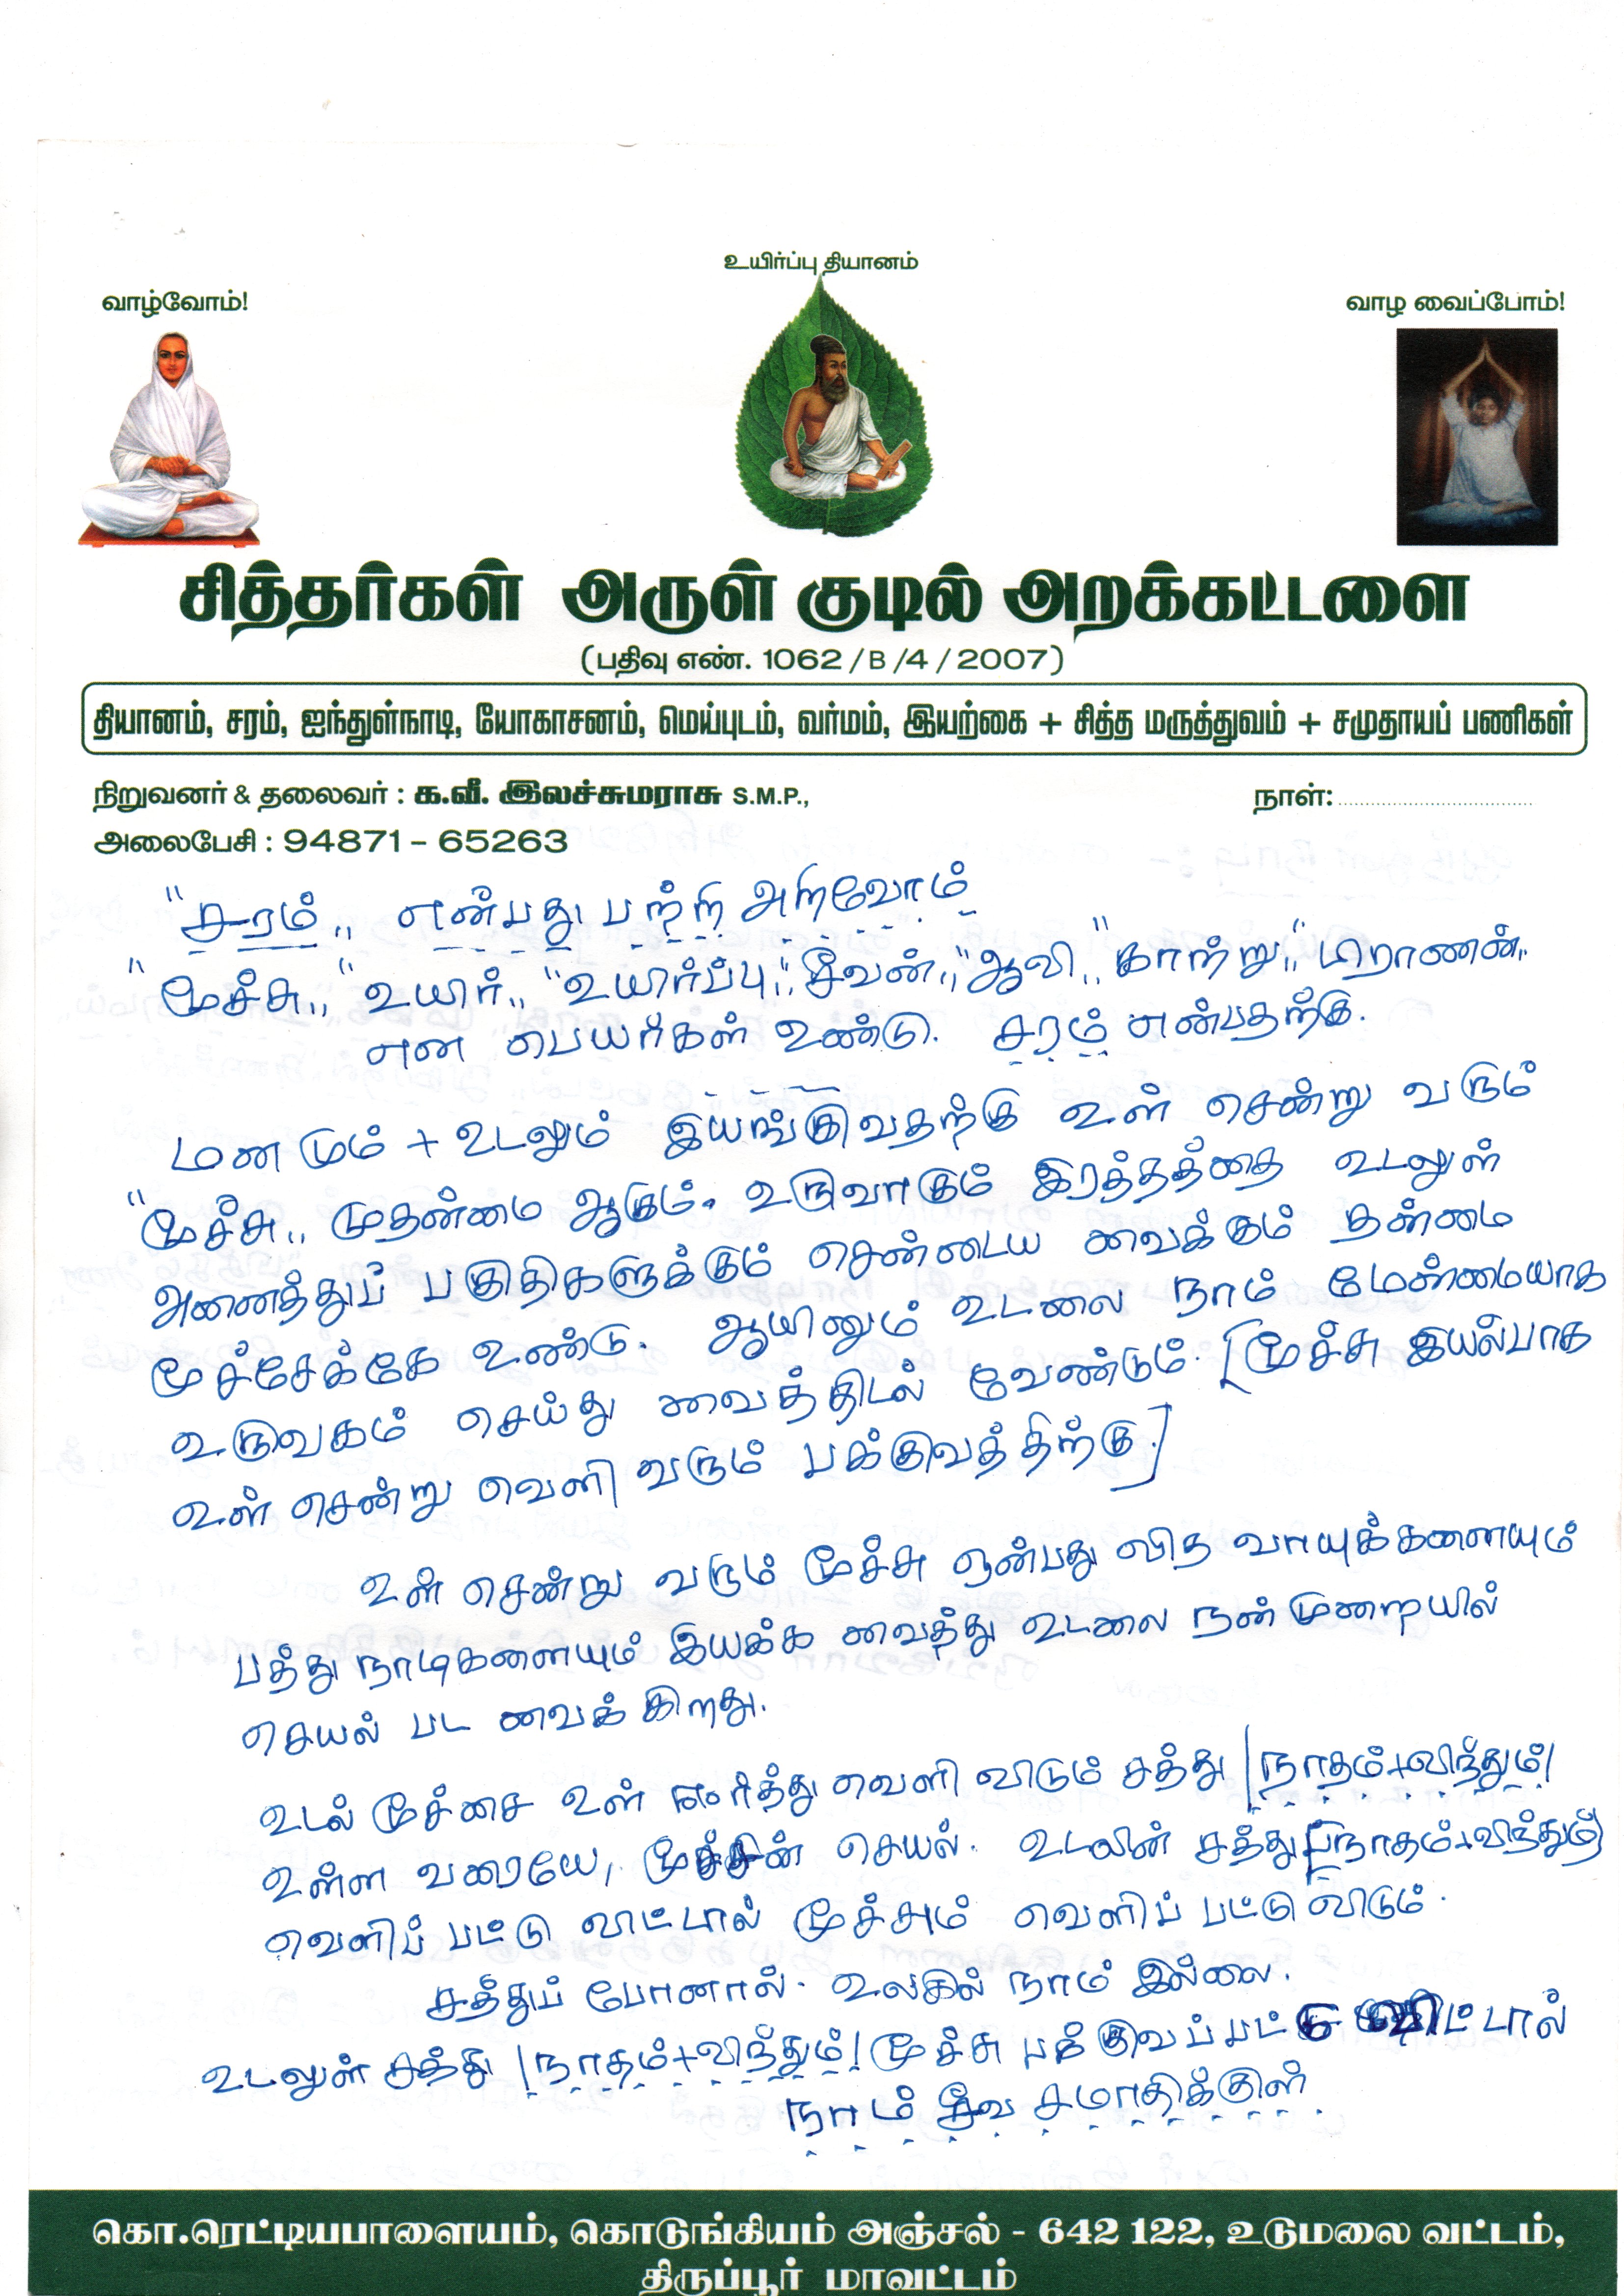 உயிர்ப்பு தியானம்
வாழ்வோம்!
வாழ வைப்போம்!
சித்தர்கள் அருள் குடில் அறக்கட்டளை
(பதிவு எண். 1062 / B / 4 / 2007)
தியானம், சரம், ஐந்துள்நாடி, யோகாசனம், மெய்புடம், வர்மம், இயற்கை + சித்த மருத்துவம் + சமுதாயப் பணிகள்
நிறுவனர் & தலைவர் : க.வீ. இலச்சுமராசு S.M.P.,
நாள்:
அலைபேசி : 94871 - 65263
"சரம்,, என்பது பற்றி அறிவோம்
"மூச்சு,, "உயிர்,, "உயிர்ப்பு,, "சீவன்,, "ஆவி,, "காற்று,, "பிராணன்,,
என பெயர்கள் உண்டு. சரம் என்பதற்கு.
மனமும் + உடலும் இயங்குவதற்கு உள் சென்று வரும்
"மூச்சு,, முதன்மை ஆகும். உருவாகும் இரத்தத்தை உடலுள்
அனைத்துப் பகுதிகளுக்கும் சென்டைய வைக்கும் தன்மை
மூச்சேக்கே உண்டு. ஆயினும் உடலை நாம் மேன்மையாக
உருவகம் செய்து வைத்திடல் வேண்டும். [மூச்சு இயல்பாக
உள் சென்று வெளி வரும் பக்குவத்திற்கு.]
உள் சென்று வரும் மூச்சு ஒன்பது வித வாயுக்களையும்
பத்து நாடிகளையும் இயக்க வைத்து உடலை நன் முறையில்
செயல் பட வைக்கிறது.
உடல் மூச்சை உள் ஈர்த்து வெளி விடும் சத்து |நாதம்+விந்தும்|
உள்ள வரையே, மூச்சின் செயல். உடலின் சத்து [நாதம்+விந்தும்]
வெளிப் பட்டு விட்டால் மூச்சும் வெளிப் பட்டு விடும்.
சத்துப் போனால். உலகில் நாம் இல்லை.
உடலுள் சத்து |நாதம்+விந்தும்| மூச்சு பக்குவப்பட்டு விட்டால்
நாம் சீவ சமாதிக்குள்
கொ.ரெட்டியபாளையம், கொடுங்கியம் அஞ்சல் - 642 122, உடுமலை வட்டம்,
திருப்பூர் மாவட்டம்